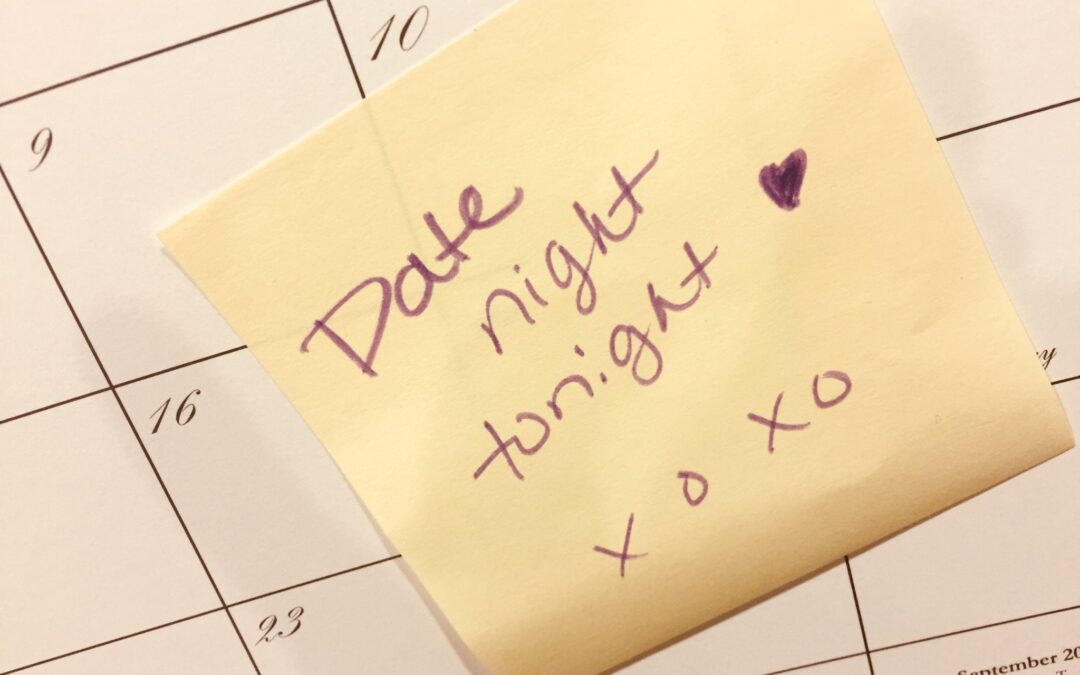 10
9
Date
night
tonight ♥
xo xo
16
23
September 20